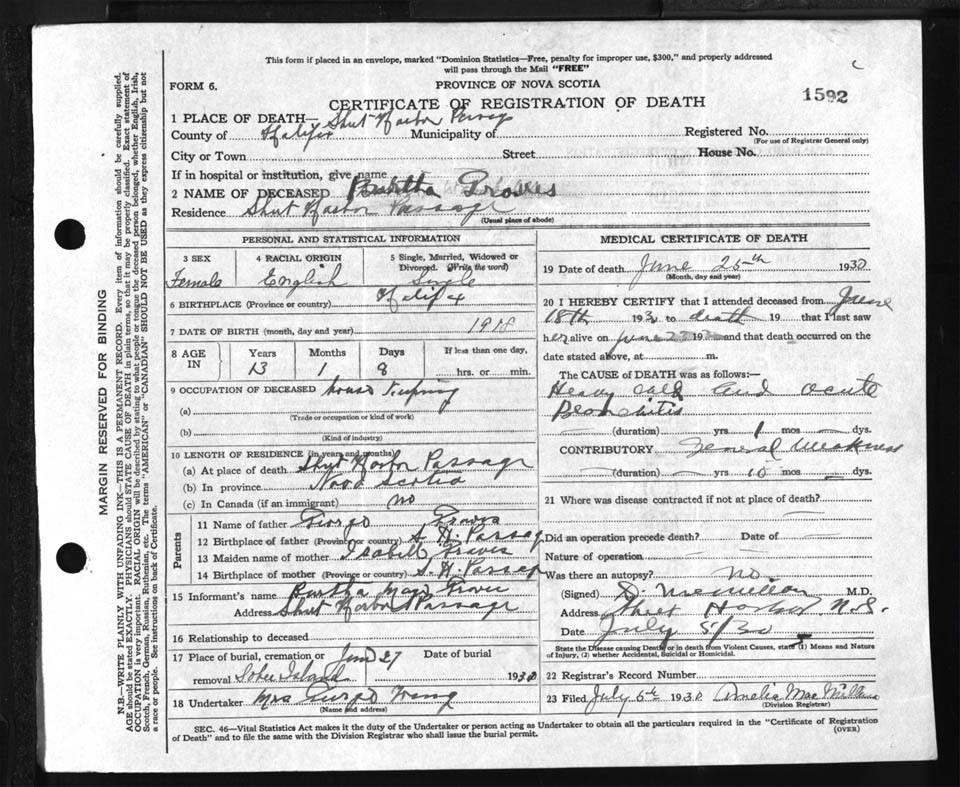 This form if placed in an envelope, marked "Dominion Statistics—Free, penalty for improper use, $300," and properly addressed
will pass through the Mail "FREE"
FORM 6.
PROVINCE OF NOVA SCOTIA
CERTIFICATE OF REGISTRATION OF DEATH
1592
1 PLACE OF DEATH—
County of Halifax Municipality of Registered No.
(For use of Registrar General only)
City or Town Street House No.
If in hospital or institution, give name
2 NAME OF DECEASED
Residence Passage
(Usual place of abode)
PERSONAL AND STATISTICAL INFORMATION
3 SEX 4 RACIAL ORIGIN 5 Single, Married, Widowed or
Divorced. (Write the word)
Female English Single
6 BIRTHPLACE (Province or country) Halifax
7 DATE OF BIRTH (month, day and year)
8 AGE IN Years Months Days If less than one day,
13 1 8 hrs. or min.
9 OCCUPATION OF DECEASED house
(a)
(Trade or occupation or kind of work)
(b)
(Kind of industry)
10 LENGTH OF RESIDENCE (in years and months)
(a) At place of death Passage
(b) In province Nova Scotia
(c) In Canada (if an immigrant) no
Parents
11 Name of father
12 Birthplace of father (Province or country) S. H. Passage
13 Maiden name of mother
14 Birthplace of mother (Province or country) S. H. Passage
15 Informant's name
Address Passage
16 Relationship to deceased
17 Place of burial, cremation or Date of burial
removal Island June 27 1930
18 Undertaker Mrs
(Name and address)
MEDICAL CERTIFICATE OF DEATH
19 Date of death June 1930
(Month, day and year)
20 I HEREBY CERTIFY that I attended deceased from June
18th 1930 to death 19 that I last saw
her alive on June 23 and that death occurred on the
date stated above, at m.
The CAUSE of DEATH was as follows:—
Heavy cold and acute
(duration) yrs 1 mos dys.
CONTRIBUTORY General Weakness
(duration) yrs 10 mos dys.
21 Where was disease contracted if not at place of death?
Did an operation precede death? Date of
Nature of operation
Was there an autopsy? no
(Signed) D. McMillan M.D.
Address Sheet Harbor N.S.
Date July 5/30
State the Disease causing Death or in death from Violent Causes, state (1) Means and Nature
of Injury, (2) whether Accidental, Suicidal or Homicidal.
22 Registrar's Record Number
23 Filed July 1930 Amelia
(Division Registrar)
SEC. 46—Vital Statistics Act makes it the duty of the Undertaker or person acting as Undertaker to obtain all the particulars required in the "Certificate of Registration
of Death" and to file the same with the Division Registrar who shall issue the burial permit.
(OVER)
MARGIN RESERVED FOR BINDING
N.B.—WRITE PLAINLY WITH UNFADING INK—THIS IS A PERMANENT RECORD. Every item of information should be carefully supplied.
AGE should be stated EXACTLY. PHYSICIANS should STATE CAUSE OF DEATH in plain terms, so that it may be properly classified. Exact statement of
OCCUPATION is very important. RACIAL ORIGIN will be described by stating to what people or tongue the deceased person belonged, whether English, Irish,
Scotch, French, German, Russian, Ruthenian, etc. The terms "AMERICAN" or "CANADIAN" SHOULD NOT BE USED as they express citizenship but not
a race or people. See instructions on back of Certificate.